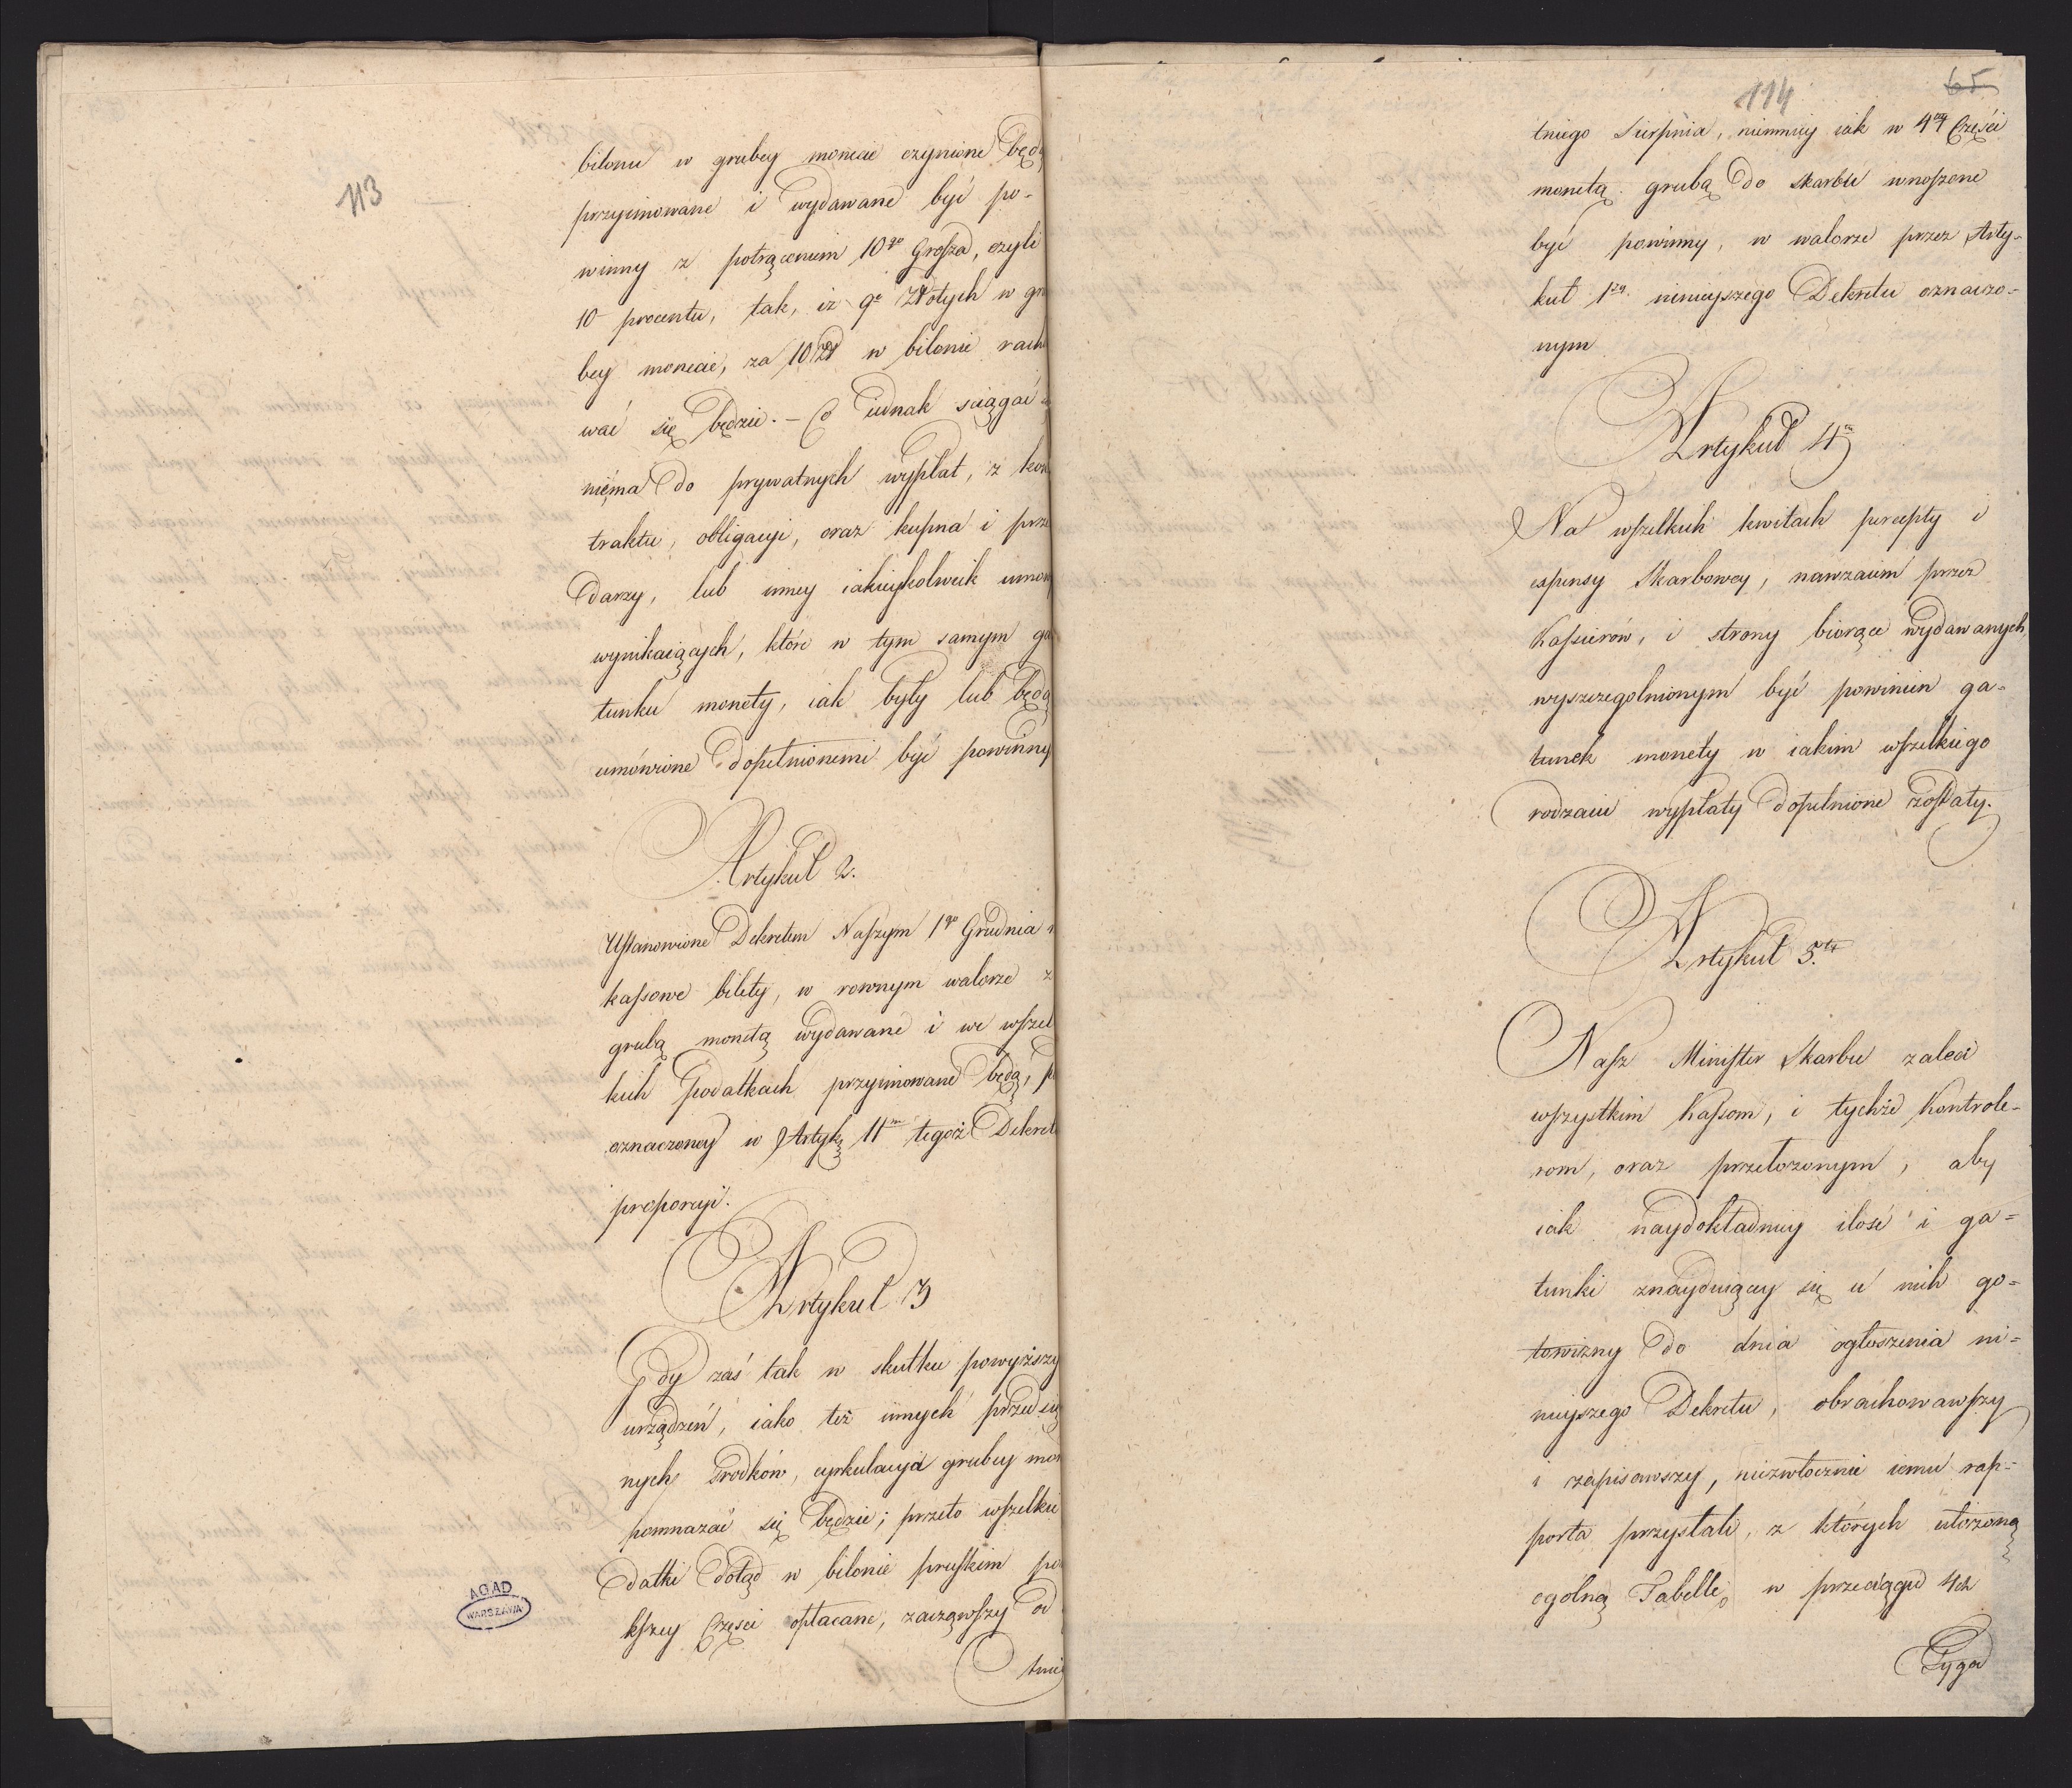 113
bilonu w grubey monecie czynione będą
przyimowane i wydawane być po-
winny z potrąceniem 10go Grosza, czyli
10 procentu, tak, iż 9c Złotych w gru
bey monecie, za 10 Zł w bilonie racho
wać się będzie. – Co iednak sciągać
niema do prywatnych wypłat, z kon
traktu, obligacyi, oraz kupna i prze
darzy, lub inney iakieykolwiek umow
wynikaiących, które w tym samym ga
tunku monety, iak były lub będą
umówione dopełnionemi być powinny
Artykuł 2.
Ustanowione Dekretem Naszym 1go Grudnia
kassowe bilety, w rownym walorze z
grubą monetą wydawane i we wszel
kich podatkach przyimowane będą, po
oznaczoney w Artyk 11m tegoż Dekretu
proporcyi.
Artykuł 3
Gdy zaś tak w skutku powyższy
urządzeń, iako też innych przedsię
nych srodków, cyrkulacya grubey mon
pomnażać się będzie; przeto wszelkie
datki dotąd w bilonie pruskim po
kszey Częsci opłacane, zacząwszy od
tnie
AGAD
WARSZAWA
114
65
tniego Sierpnia, niemniey iak w 4ey Częsci
monetą grubą do skarbu wnoszone
być powinny, w walorze przez Arty-
kuł 1szy ninieyszego Dekretu oznaczo-
nym
Artykuł 4
Na wszelkich kwitach percepty i
expensy Skarbowey, nawzaiem przez
Kassierów, i strony biorące wydawanych,
wyszczegolnionym być powinien ga-
tunek monety w iakim wszelkiego
rodzaiu wypłaty dopełnione zostały.
Artykuł 5ty
Nasz Minister Skarbu zaleci
wszystkim Kassom, i tychże Kontrole-
rom, oraz przełożonym, aby
iak naydokładniey ilość i ga-
tunki znayduiącey się u nich go-
towizny do dnia ogłoszenia ni-
nieyszego Dekretu, obrachowawszy
i zapisawszy, niezwłocznie iemu rap-
porta przysłali, z których ułożoną
ogólną Tabellę, w przeciągu 4ch
Tygo